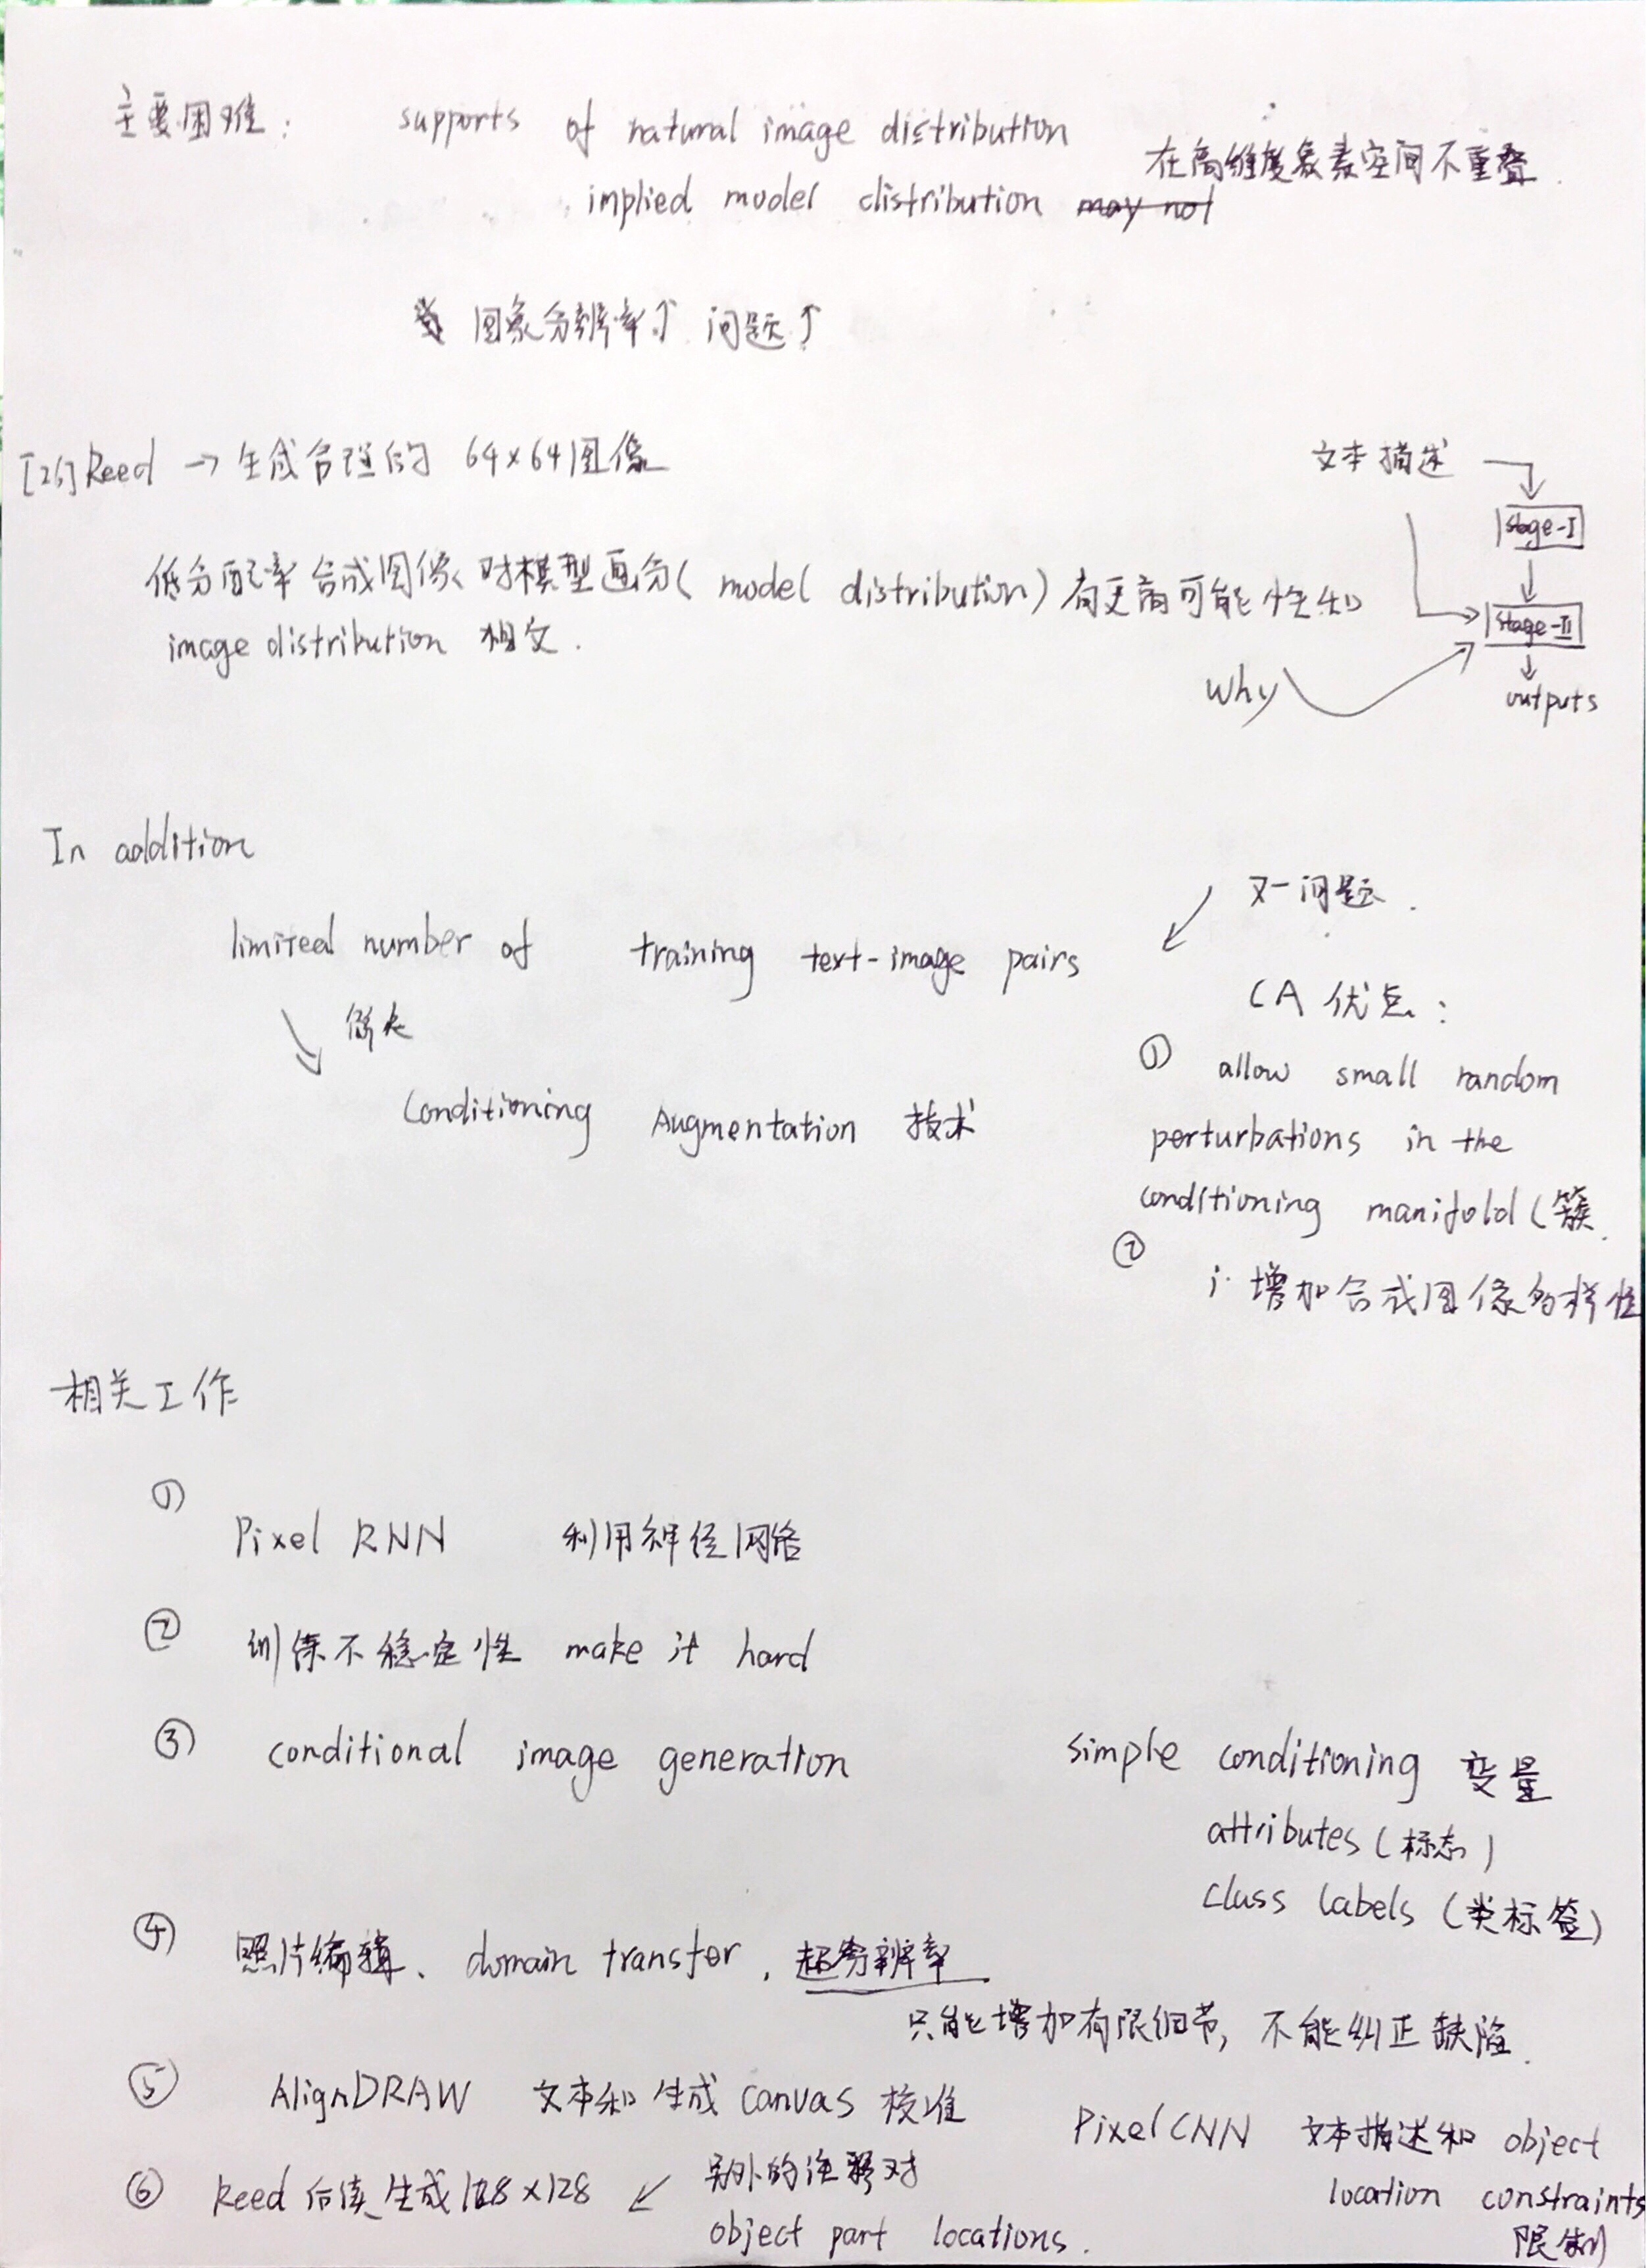 主要困难： supports of natural image distribution
implied model distribution may not
在高维度象素空间不重叠.
图象分辨率↑ 问题↑
[26] Reed → 生成合理的 64×64图像
低分配率合成图像 对模型画分( model distribution) 有更高可能性和
image distribution 相交.
文本描述
stage-I
stage-II
outputs
Why
In addition
limited number of training text-image pairs
Conditioning Augmentation 技术
又一问题.
CA 优点：
① allow small random
perturbations in the
conditioning manifold (簇
②
增加合成图像多样性
相关工作
① Pixel RNN 利用神经网络
② 训练不稳定性 make it hard
③ conditional image generation
simple conditioning 变量
attributes (标志)
class labels (类标签)
④ 照片编辑、domain transfer, 超分辨率
只能增加有限细节, 不能纠正缺陷.
⑤ AlignDRAW 文本和生成 canvas 校准
PixelCNN 文本描述和 object
location constraints
限制
⑥ Reed 后续生成 128×128 ↙ 另外的注释对
object part locations.